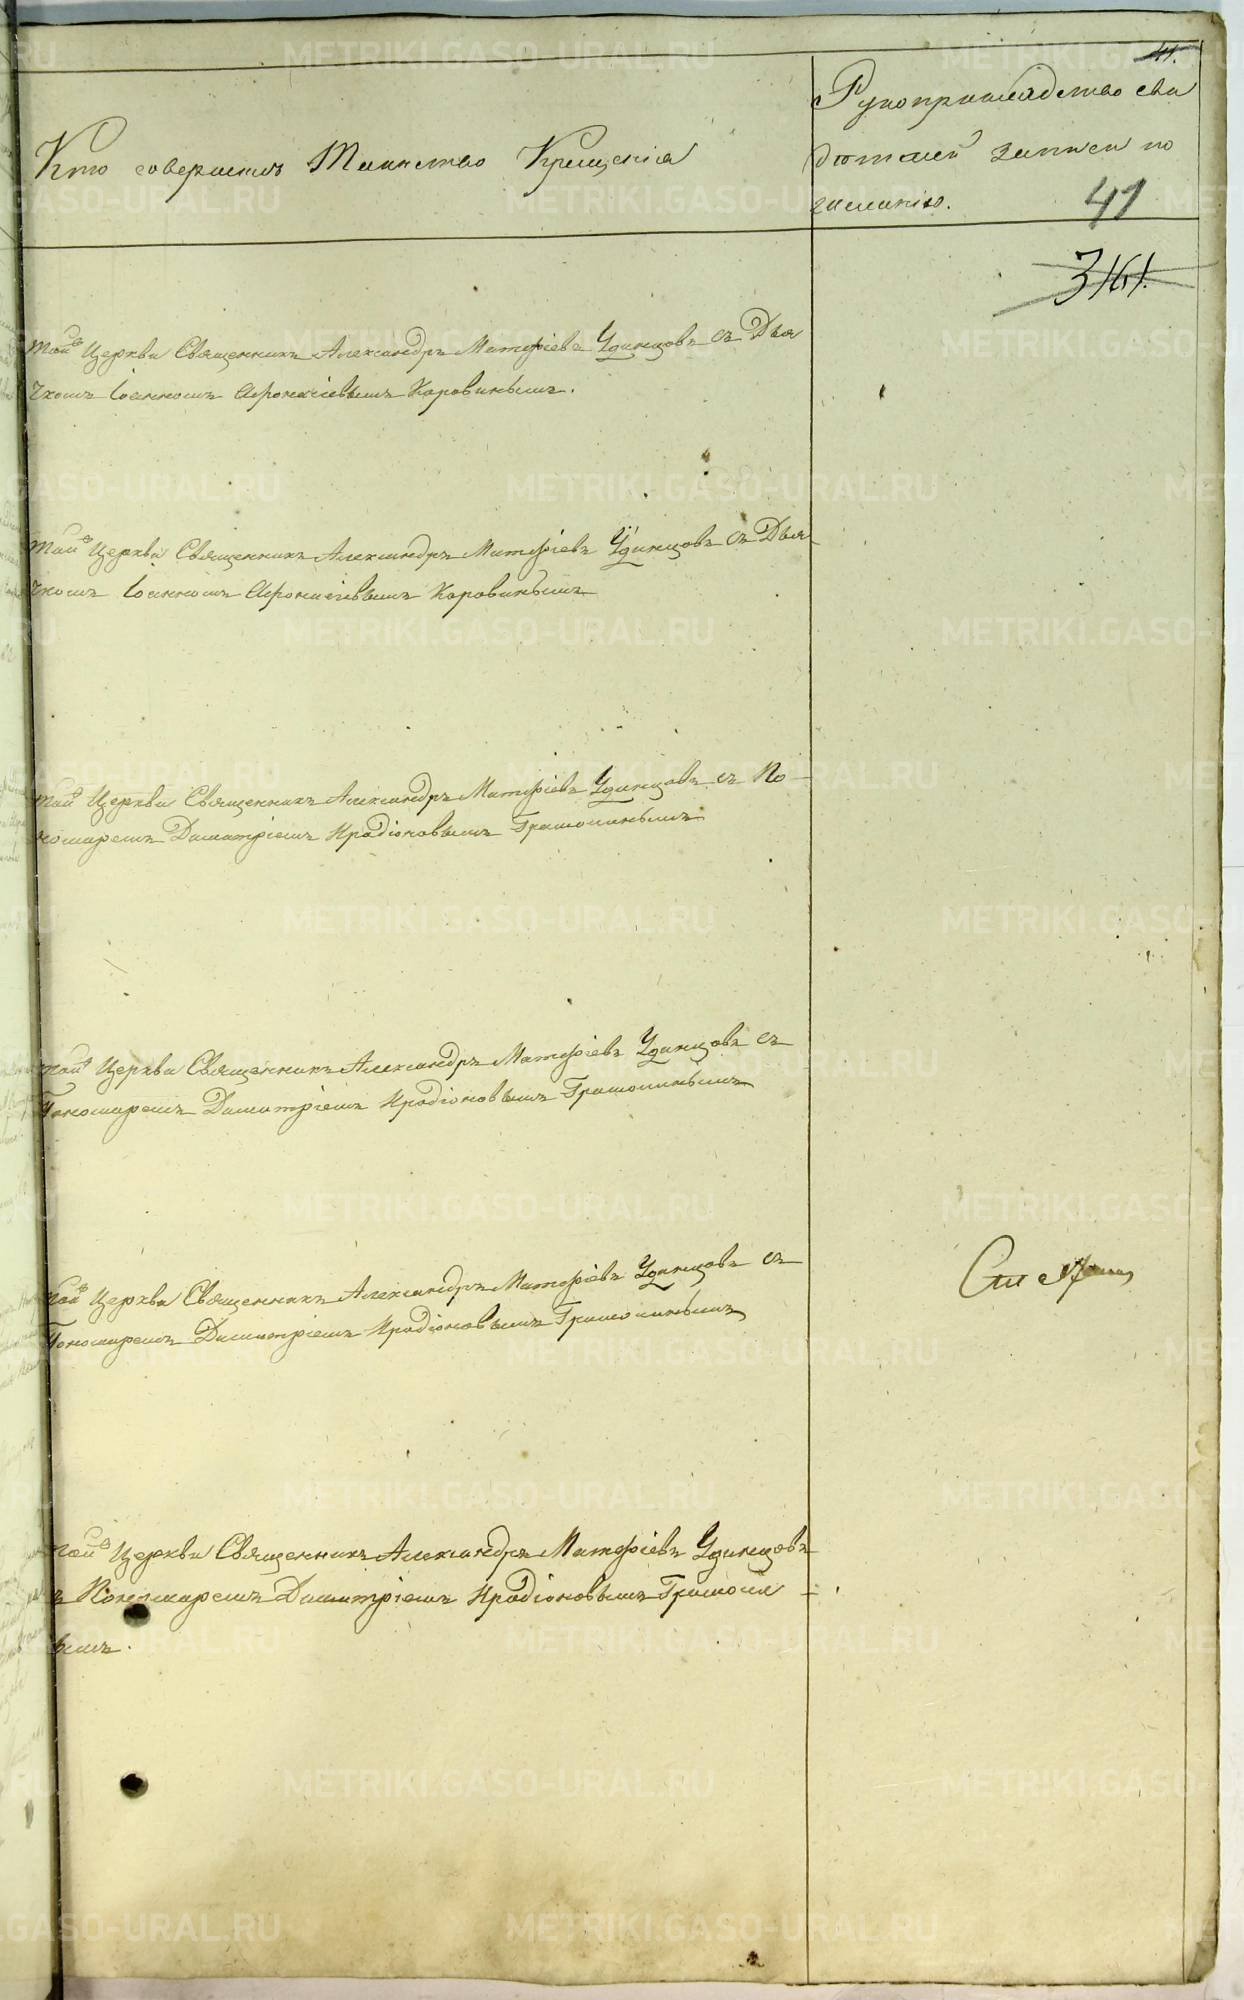 41.
Кто совершалъ Таинство Крещенія
Рукоприкладство сви
дѣтелей записи по
желанію.
41
3161.
той Церкви Священникъ Александръ Матфіевъ Удинцовъ съ Дья
чкомъ Іоанномъ Афонасіевымъ Коровинымъ.
той Церкви Священникъ Александръ Матфіевъ Удинцовъ съ Дья
чкомъ Іоанномъ Афонасіевымъ Коровинымъ
той Церкви Священникъ Александръ Матфіевъ Удинцовъ съ По
номаремъ Димитріемъ Иродіоновымъ Грамолинымъ
той Церкви Священникъ Александръ Матфіевъ Удинцовъ съ
Пономаремъ Димитріемъ Иродіоновымъ Грамолинымъ
той Церкви Священникъ Александръ Матфіевъ Удинцовъ съ
Пономаремъ Димитріемъ Иродіоновымъ Грамолинымъ
той Церкви Священникъ Александръ Матфіевъ Удинцовъ
съ Пономаремъ Димитріемъ Иродіоновымъ Грамоли
нымъ.
METRIKI.GASO-URAL.RU